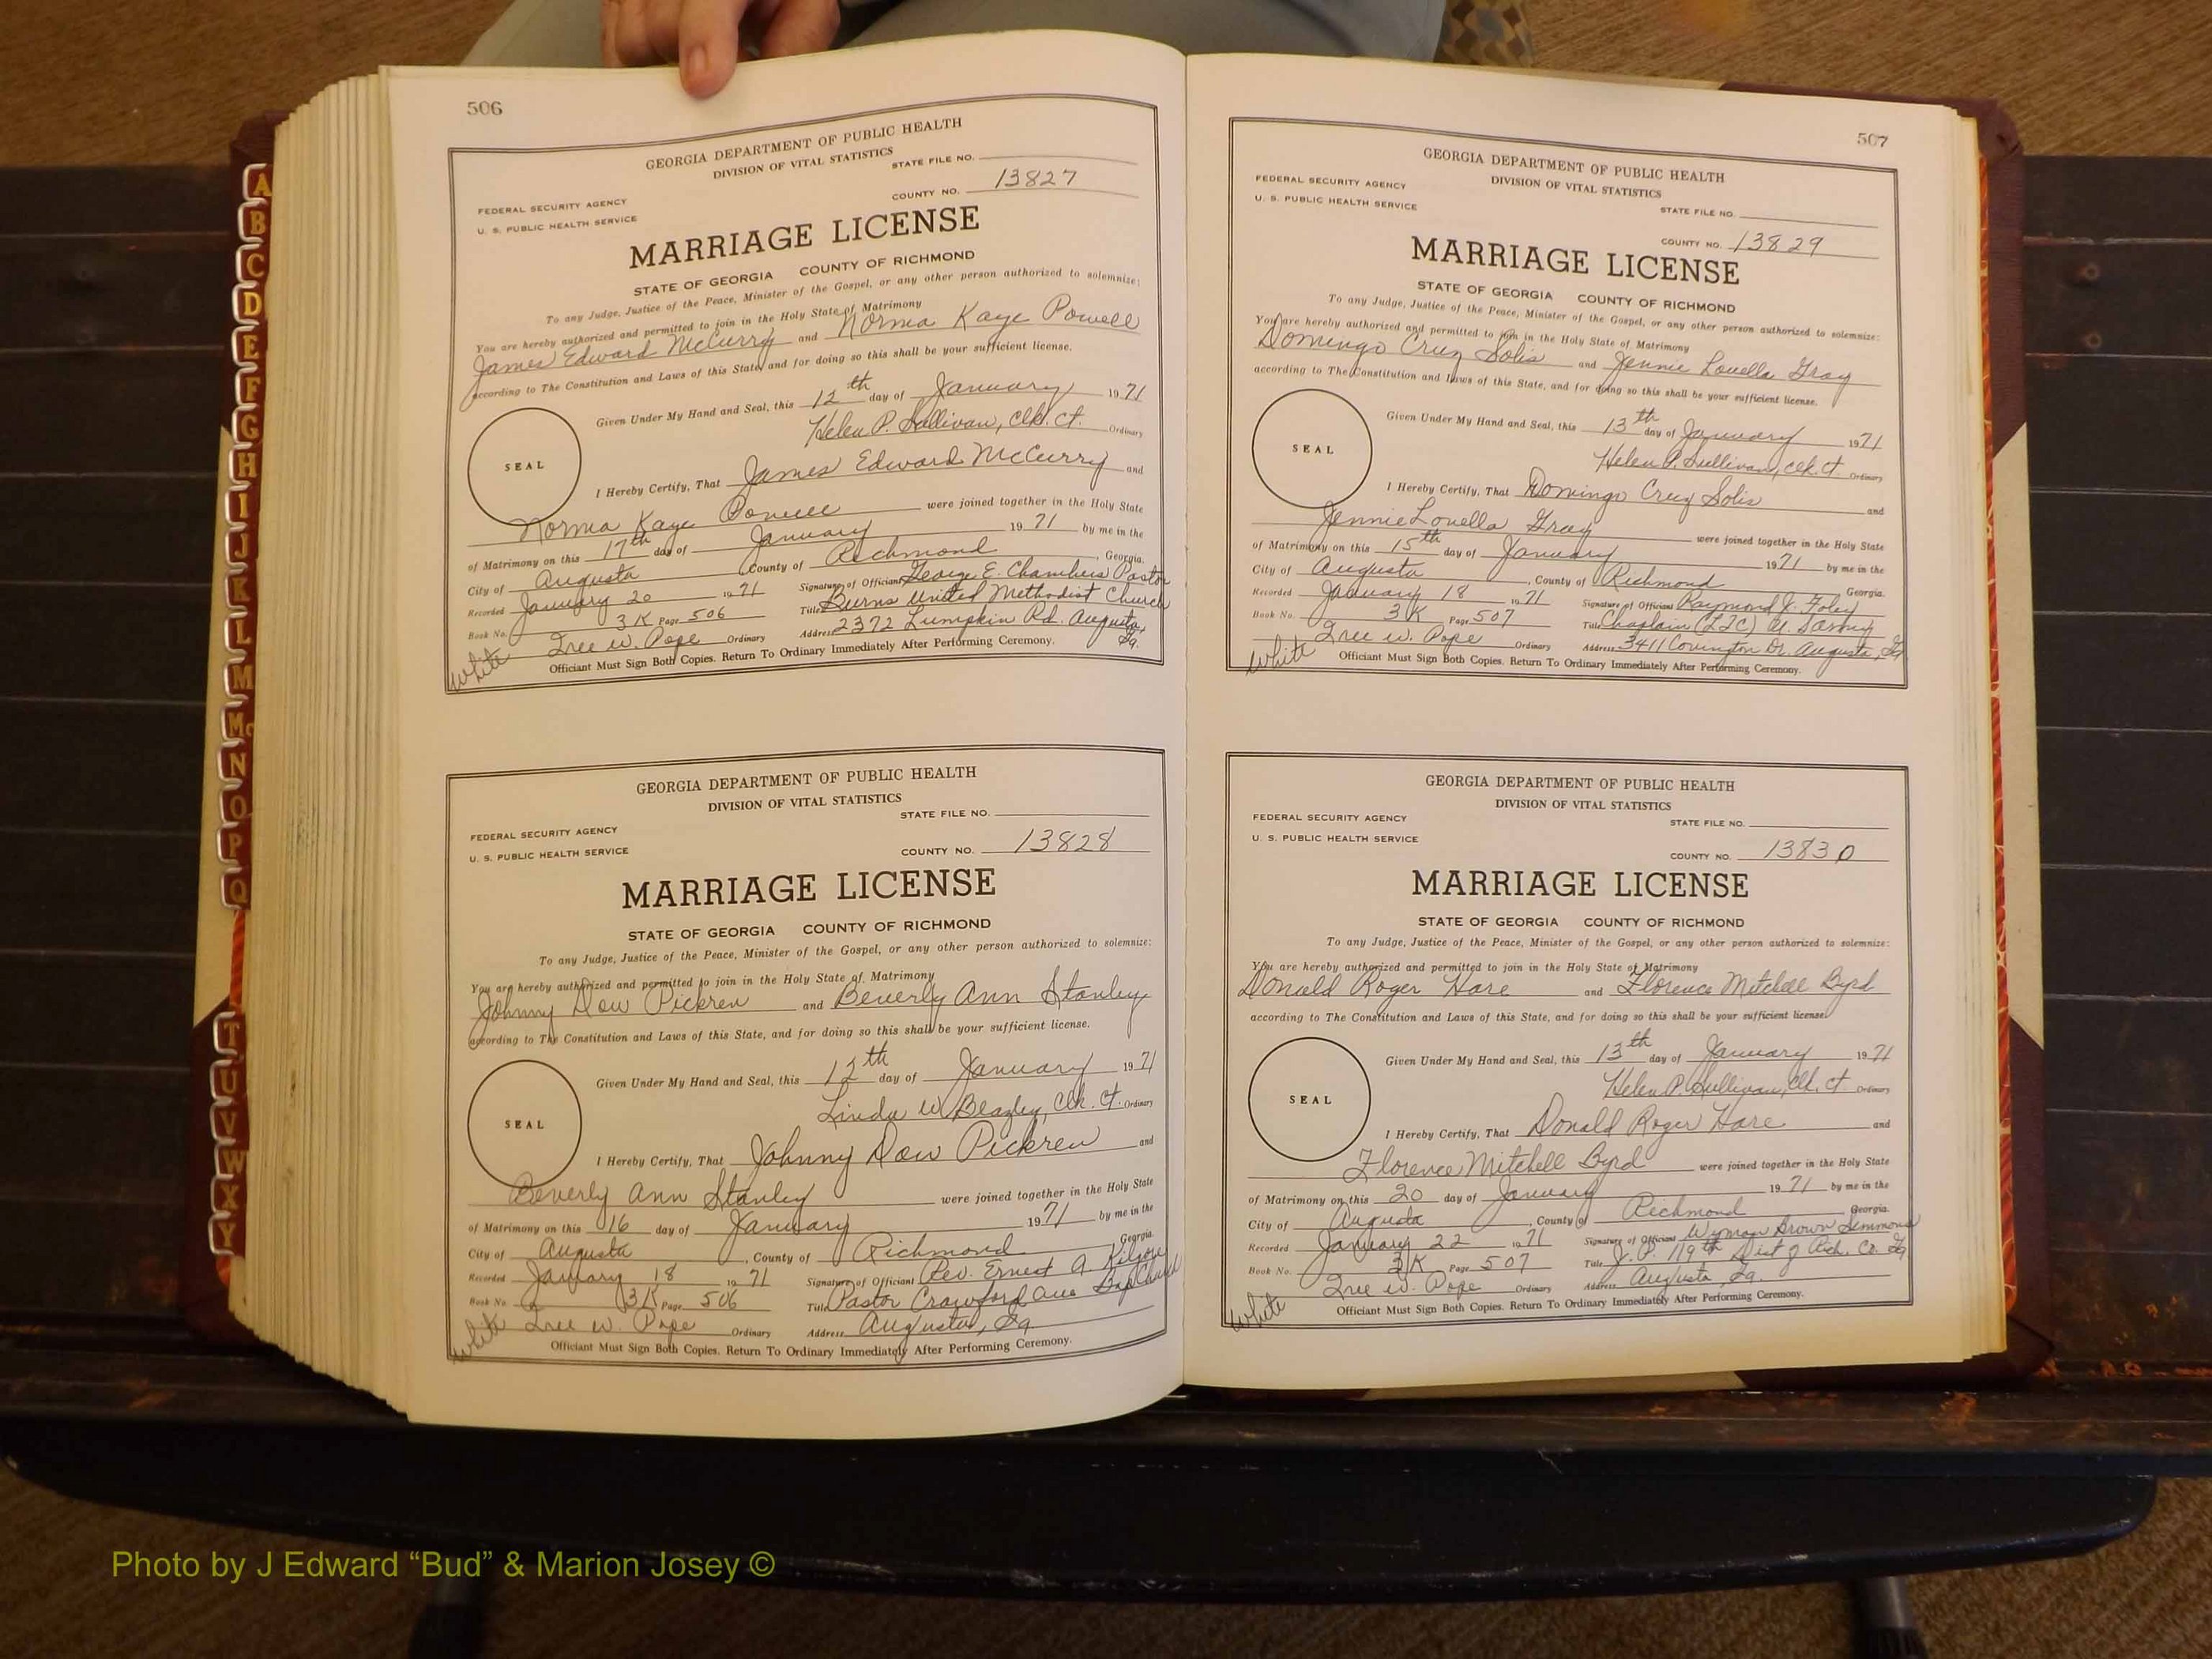 506
GEORGIA DEPARTMENT OF PUBLIC HEALTH
DIVISION OF VITAL STATISTICS
STATE FILE NO.
COUNTY NO. 13827
FEDERAL SECURITY AGENCY
U. S. PUBLIC HEALTH SERVICE
MARRIAGE LICENSE
STATE OF GEORGIA COUNTY OF RICHMOND
To any Judge, Justice of the Peace, Minister of the Gospel, or any other person authorized to solemnize:
You are hereby authorized and permitted to join in the Holy State of Matrimony
James Edward McCurry and Norma Kaye Powell
according to The Constitution and Laws of this State, and for doing so this shall be your sufficient license.
Given Under My Hand and Seal, this 12th day of January 1971
Helen P. Sullivan, Clk. Ct. Ordinary
SEAL
I Hereby Certify, That James Edward McCurry and
Norma Kaye Powell were joined together in the Holy State
of Matrimony on this 17th day of January 1971 by me in the
City of Augusta County of Richmond, Georgia.
Recorded January 20 1971 Signature of Official George E. Chambers Pastor
Book No. 3K Page 506 Title Burns United Methodist Church
W. Pope Ordinary Address 2372 Lumpkin Rd. Augusta, Ga.
White
Officiant Must Sign Both Copies. Return To Ordinary Immediately After Performing Ceremony.
GEORGIA DEPARTMENT OF PUBLIC HEALTH
DIVISION OF VITAL STATISTICS
STATE FILE NO.
FEDERAL SECURITY AGENCY
U. S. PUBLIC HEALTH SERVICE
COUNTY NO. 13828
MARRIAGE LICENSE
STATE OF GEORGIA COUNTY OF RICHMOND
To any Judge, Justice of the Peace, Minister of the Gospel, or any other person authorized to solemnize:
You are hereby authorized and permitted to join in the Holy State of Matrimony
Johnny Dow Pickren and Beverly Ann Stanley
according to The Constitution and Laws of this State, and for doing so this shall be your sufficient license.
Given Under My Hand and Seal, this 12th day of January 1971
Linda W. Beazley, Clk. Ct. Ordinary
SEAL
I Hereby Certify, That Johnny Dow Pickren and
Beverly Ann Stanley were joined together in the Holy State
of Matrimony on this 16 day of January 1971 by me in the
City of Augusta, County of Richmond Georgia
Recorded January 18 1971 Signature of Officiant Rev. Ernest A. Kilgore
Book No. 3K Page 506 Title Pastor Crawford Ave Bap Church
W. Pope Ordinary Address Augusta, Ga.
White
Officiant Must Sign Both Copies. Return To Ordinary Immediately After Performing Ceremony.
507
GEORGIA DEPARTMENT OF PUBLIC HEALTH
DIVISION OF VITAL STATISTICS
FEDERAL SECURITY AGENCY
U. S. PUBLIC HEALTH SERVICE
STATE FILE NO.
COUNTY NO. 13829
MARRIAGE LICENSE
STATE OF GEORGIA COUNTY OF RICHMOND
To any Judge, Justice of the Peace, Minister of the Gospel, or any other person authorized to solemnize:
You are hereby authorized and permitted to join in the Holy State of Matrimony
Domingo Cruz Solis and Jennie Louella Gray
according to The Constitution and Laws of this State, and for doing so this shall be your sufficient license.
Given Under My Hand and Seal, this 13th day of January 1971
Helen P. Sullivan, Clk. Ct. Ordinary
SEAL
I Hereby Certify, That Domingo Cruz Solis and
Jennie Louella Gray were joined together in the Holy State
of Matrimony on this 15th day of January 1971 by me in the
City of Augusta, County of Richmond Georgia.
Recorded January 18 1971 Signature of Officiant Raymond J. Foley
Book No. 3K Page 507 Title Chaplain (LTC)
W. Pope Ordinary Address 3411 Covington Dr. Augusta, Ga
White
Officiant Must Sign Both Copies. Return To Ordinary Immediately After Performing Ceremony.
GEORGIA DEPARTMENT OF PUBLIC HEALTH
DIVISION OF VITAL STATISTICS
FEDERAL SECURITY AGENCY
STATE FILE NO.
U. S. PUBLIC HEALTH SERVICE
COUNTY NO. 13830
MARRIAGE LICENSE
STATE OF GEORGIA COUNTY OF RICHMOND
To any Judge, Justice of the Peace, Minister of the Gospel, or any other person authorized to solemnize:
You are hereby authorized and permitted to join in the Holy State of Matrimony
Donald Roger Hare and Florence Mitchell Byrd
according to The Constitution and Laws of this State, and for doing so this shall be your sufficient license.
Given Under My Hand and Seal, this 13th day of January 1971
Helen P. Sullivan, Clk. Ct. Ordinary
SEAL
I Hereby Certify, That Donald Roger Hare and
Florence Mitchell Byrd were joined together in the Holy State
of Matrimony on this 20 day of January 1971 by me in the
City of Augusta, County of Richmond Georgia.
Recorded January 22 1971 Signature of Officiant Wyman Brown Simmons
Book No. 3K Page 507 Title J. P. 119th Dist of Rich. Co. Ga
W. Pope Ordinary Address Augusta, Ga.
White
Officiant Must Sign Both Copies. Return To Ordinary Immediately After Performing Ceremony.
A
B
C
D
E
F
G
H
I
J
K
L
M
Mc
N
O
P
Q
T
U
V
W
X
Y
Photo by J Edward “Bud” & Marion Josey ©